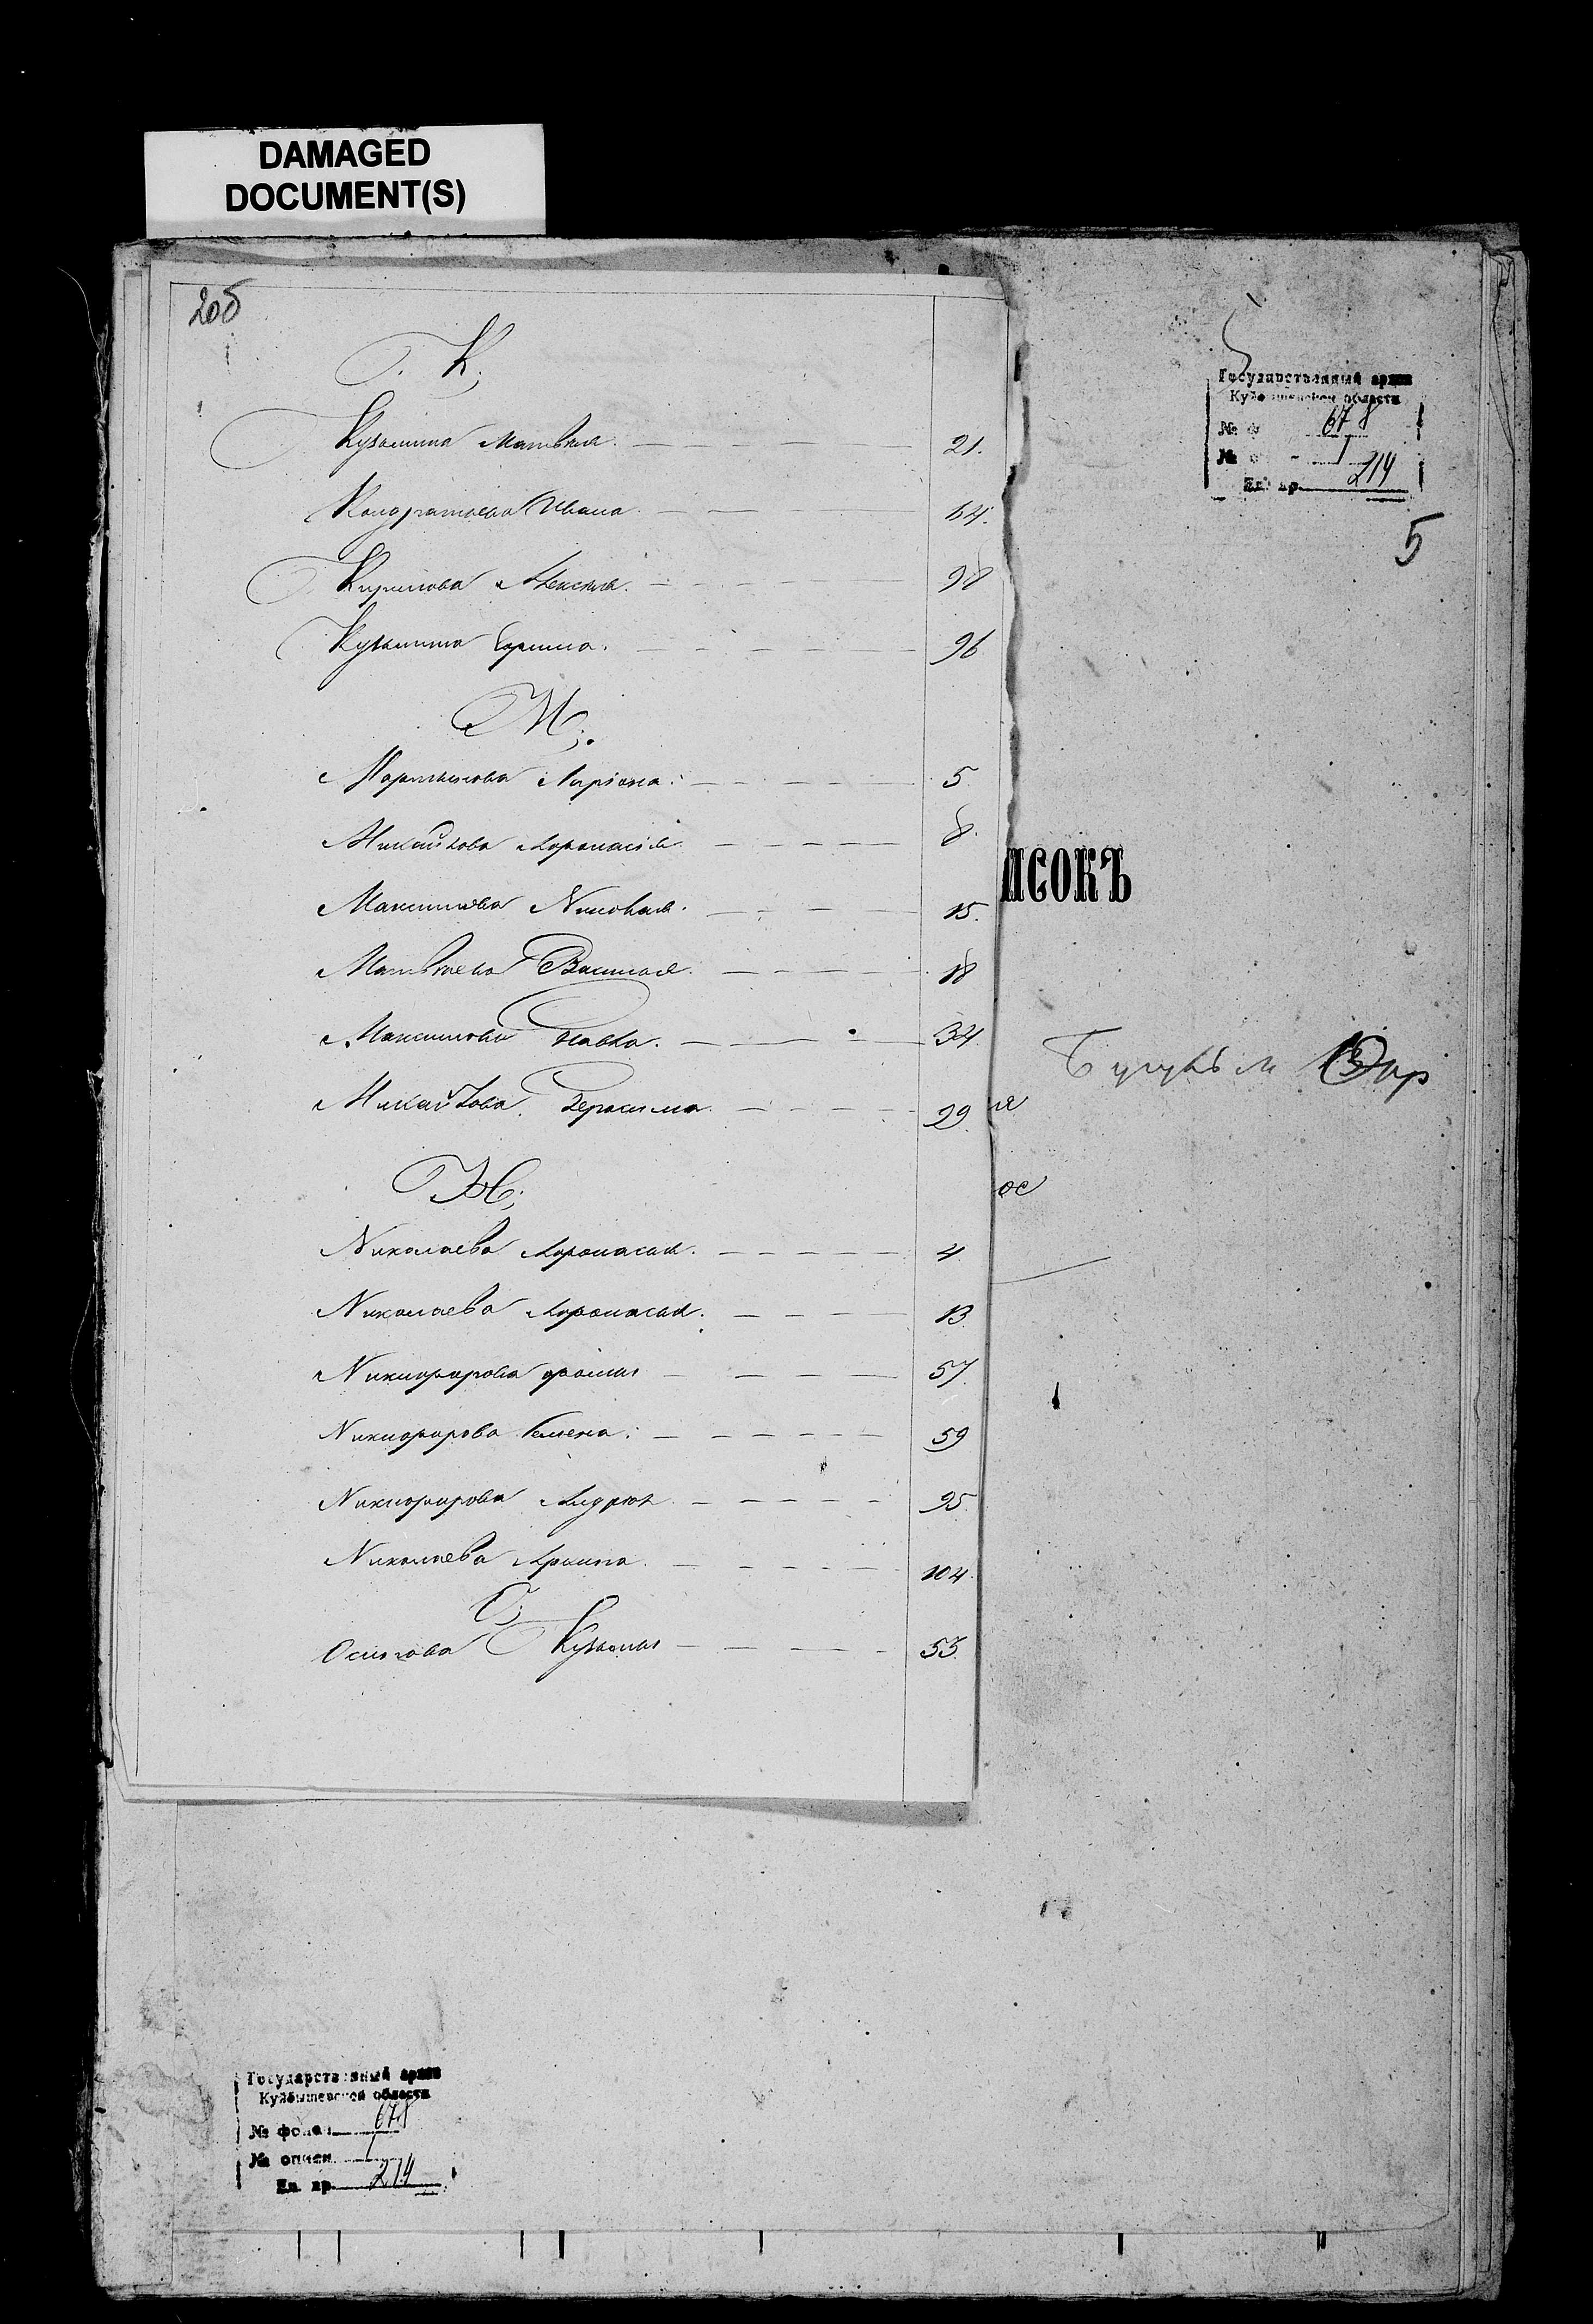 DAMAGED
DOCUMENT(S)
20б
К;
Кузьмина Матвѣя. 21.
Кондратьева Ивана. 64.
Кирилова Алексѣя. 98
Кузьмина Ефима. 96
М;
Мартынова Ларіона. 5.
Михайлова Афонасія 8.
Максимова Николая. 15.
Матвѣева Василья. 18
Максимова Павла. 34.
Михайлова Герасима. 29.
Н;
Николаева Афонасья. 4.
Николаева Афонасья. 13.
Никифорова Фомы 57.
Никифорова Семена. 59
Никифорова Андрея 95.
Николаева Архипа. 104.
О;
Осипова Кузьмы 53.
Государственный архив
Куйбышевской области
678
1
Ед. хр. 214
5
ИСОКЪ
ое
Государственный архив
Куйбышевской области
№ фонда 678
№ описи 1
Ед. хр. 214